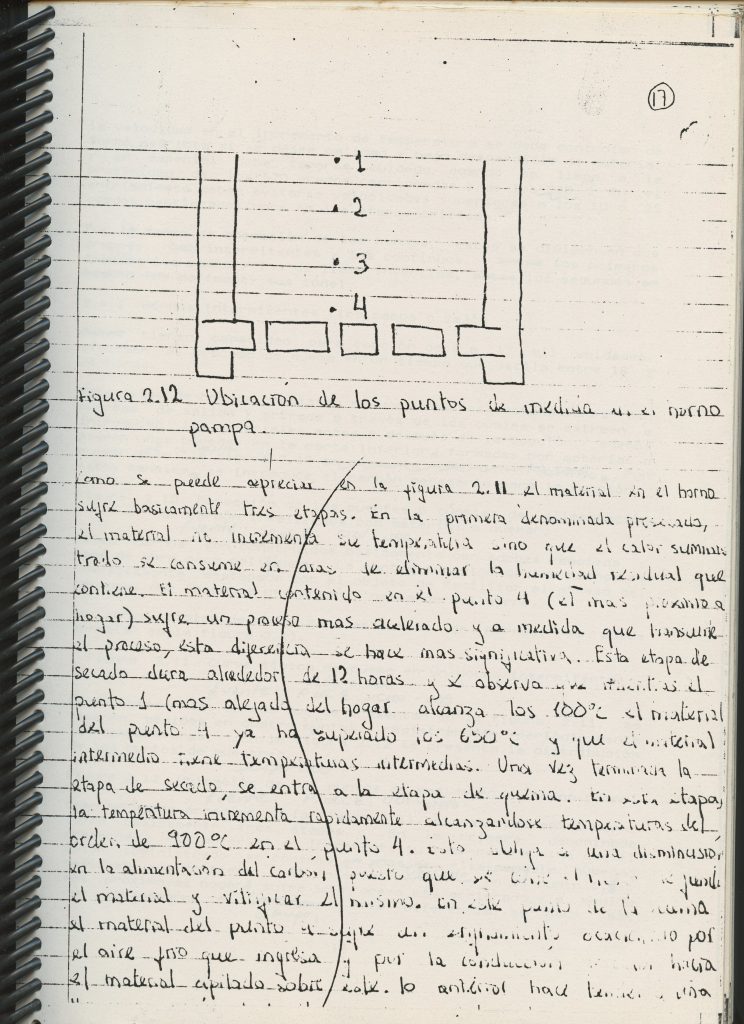 17
1
2
3
4
Figura 2.12 Ubicación de los puntos de medida en el horno
pampa.
Como se puede apreciar en la figura 2.11 el material en el horno
sufre basicamente tres etapas. En la primera denominada presecado,
el material no incrementa su temperatura sino que el calor suminis
trado se consume en aras de eliminar la humedad residual que
contiene. El material contenido en el punto 4 (el mas proximo a
hogar) sufre un proceso mas acelerado y a medida que transcurre
el proceso, esta diferencia se hace mas significativa. Esta etapa de
secado dura alrededor de 12 horas y se observa que mientras el
punto 1 (mas alejado del hogar alcanza los 100°C el material
del punto 4 ya ha superado los 650°C y que el material
intermedio tiene temperaturas intermedias. Una vez terminada la
etapa de secado, se entra a la etapa de quema. En esta etapa,
la temperatura incrementa rapidamente alcanzandose temperaturas del
orden de 900°C en el punto 4. Esto obliga a una disminusión
en la alimentación del carbón puesto que se corre el
el material y vitrificar el mismo. En este punto de la quema
el material del punto 4 sufre un enfriamiento ocacionado por
el aire frio que ingresa y por la conducción hacia
el material apilado sobre este. lo anterior hace tender a una